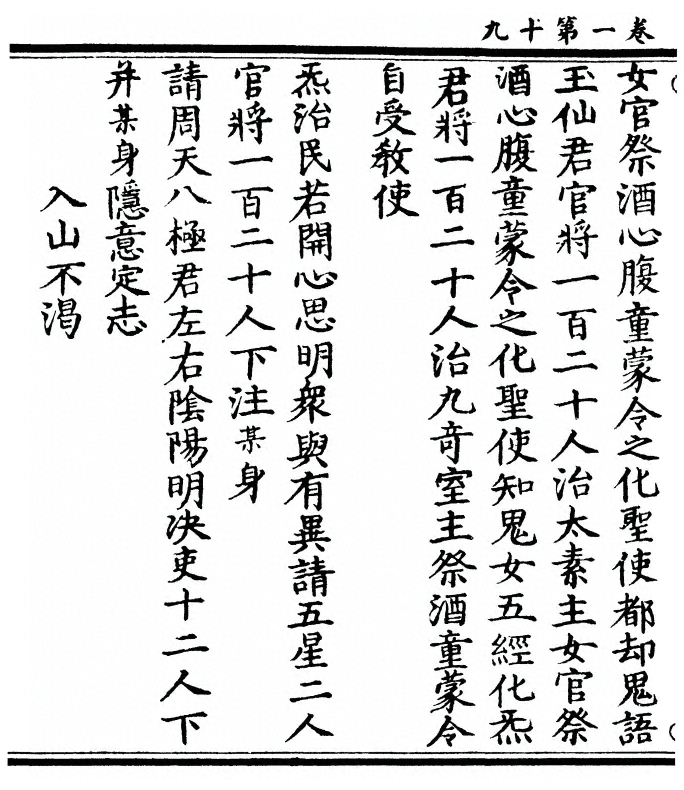 卷一第十九
女官祭酒心腹童蒙令之化聖使都却鬼語
玉仙君官將一百二十人治太素主女官祭
酒心腹童蒙令之化聖使知鬼女五經化炁
君將一百二十人治九竒室主祭酒童蒙令
自受敎使
炁治民若開心思明衆與有異請五星二人
官將一百二十人下注某身
請周天八極君左右陰陽明决吏十二人下
并某身隱意定志
入山不渴